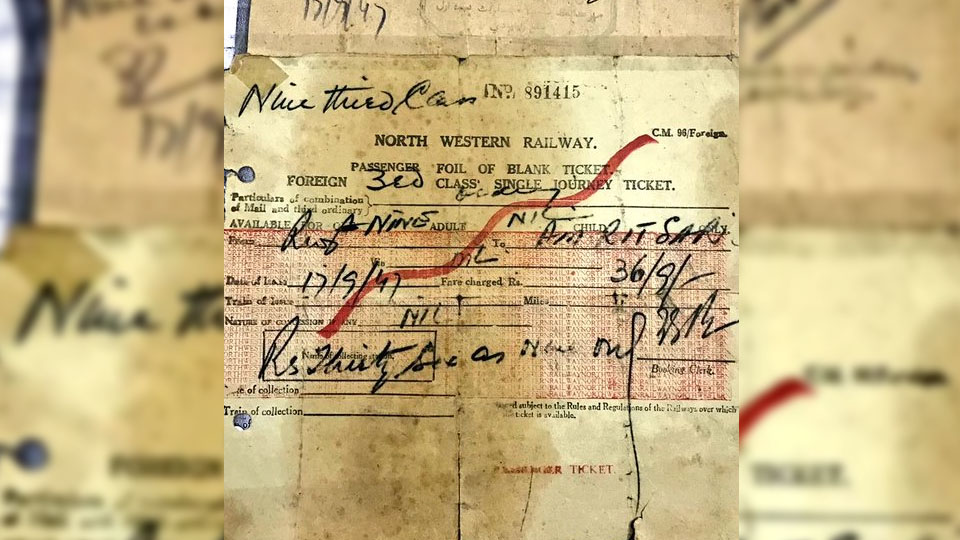 17/9/47
Nine third Class No. 891415
C.M. 96/Foreign.
NORTH WESTERN RAILWAY.
PASSENGER FOIL OF BLANK TICKET.
FOREIGN 3rd CLASS SINGLE JOURNEY TICKET.
Particulars of combination
of Mail and third ordinary
AVAILABLE FOR NINE ADULT NIL CHILD
From To AMRITSAR
Via NIL
Date of Issue 17/9/47 Fare charged Rs. 36/9/-
Train of Issue Miles
NATURE OF CONCESSION IF ANY NIL
Rs Thirty Six as Nine only
Name of collecting
Booking Clerk.
Date of collection
Train of collection
Issued subject to the Rules and Regulations of the Railways over which
ticket is available.
PASSENGER TICKET.